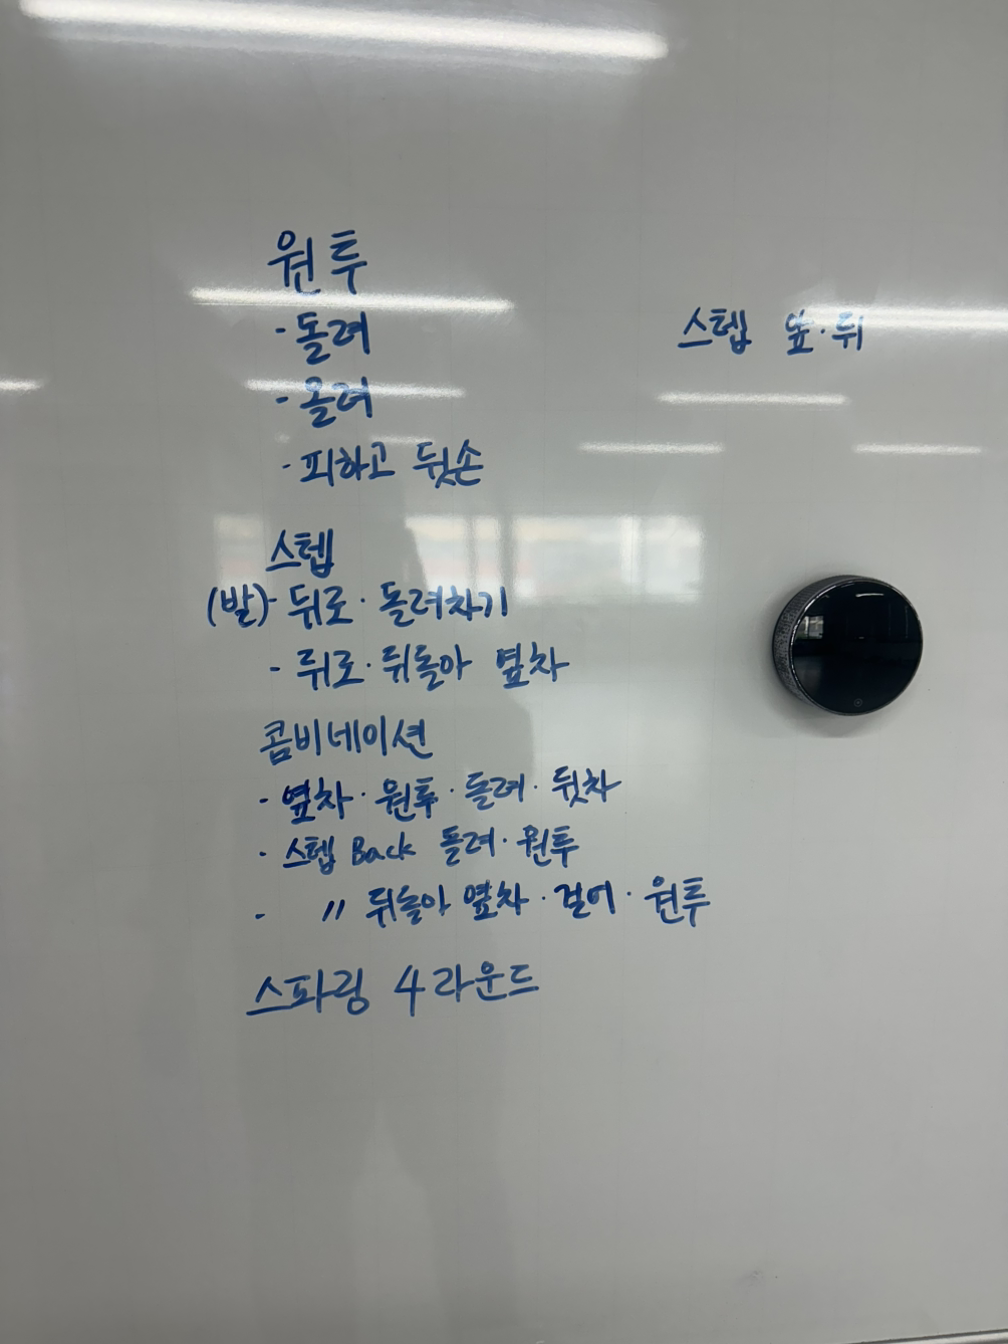 원투
· 돌려
- 올려
· 피하고 뒷손
스텝 앞·뒤
스텝
(발)- 뒤로 · 돌려차기
- 뒤로 · 뒤돌아 옆차
콤비네이션
· 옆차 · 원투 · 돌려 · 뒷차
· 스텝 Back 돌려 · 원투
- 〃 뒤돌아 옆차 · 걸어 · 원투
스파링 4라운드